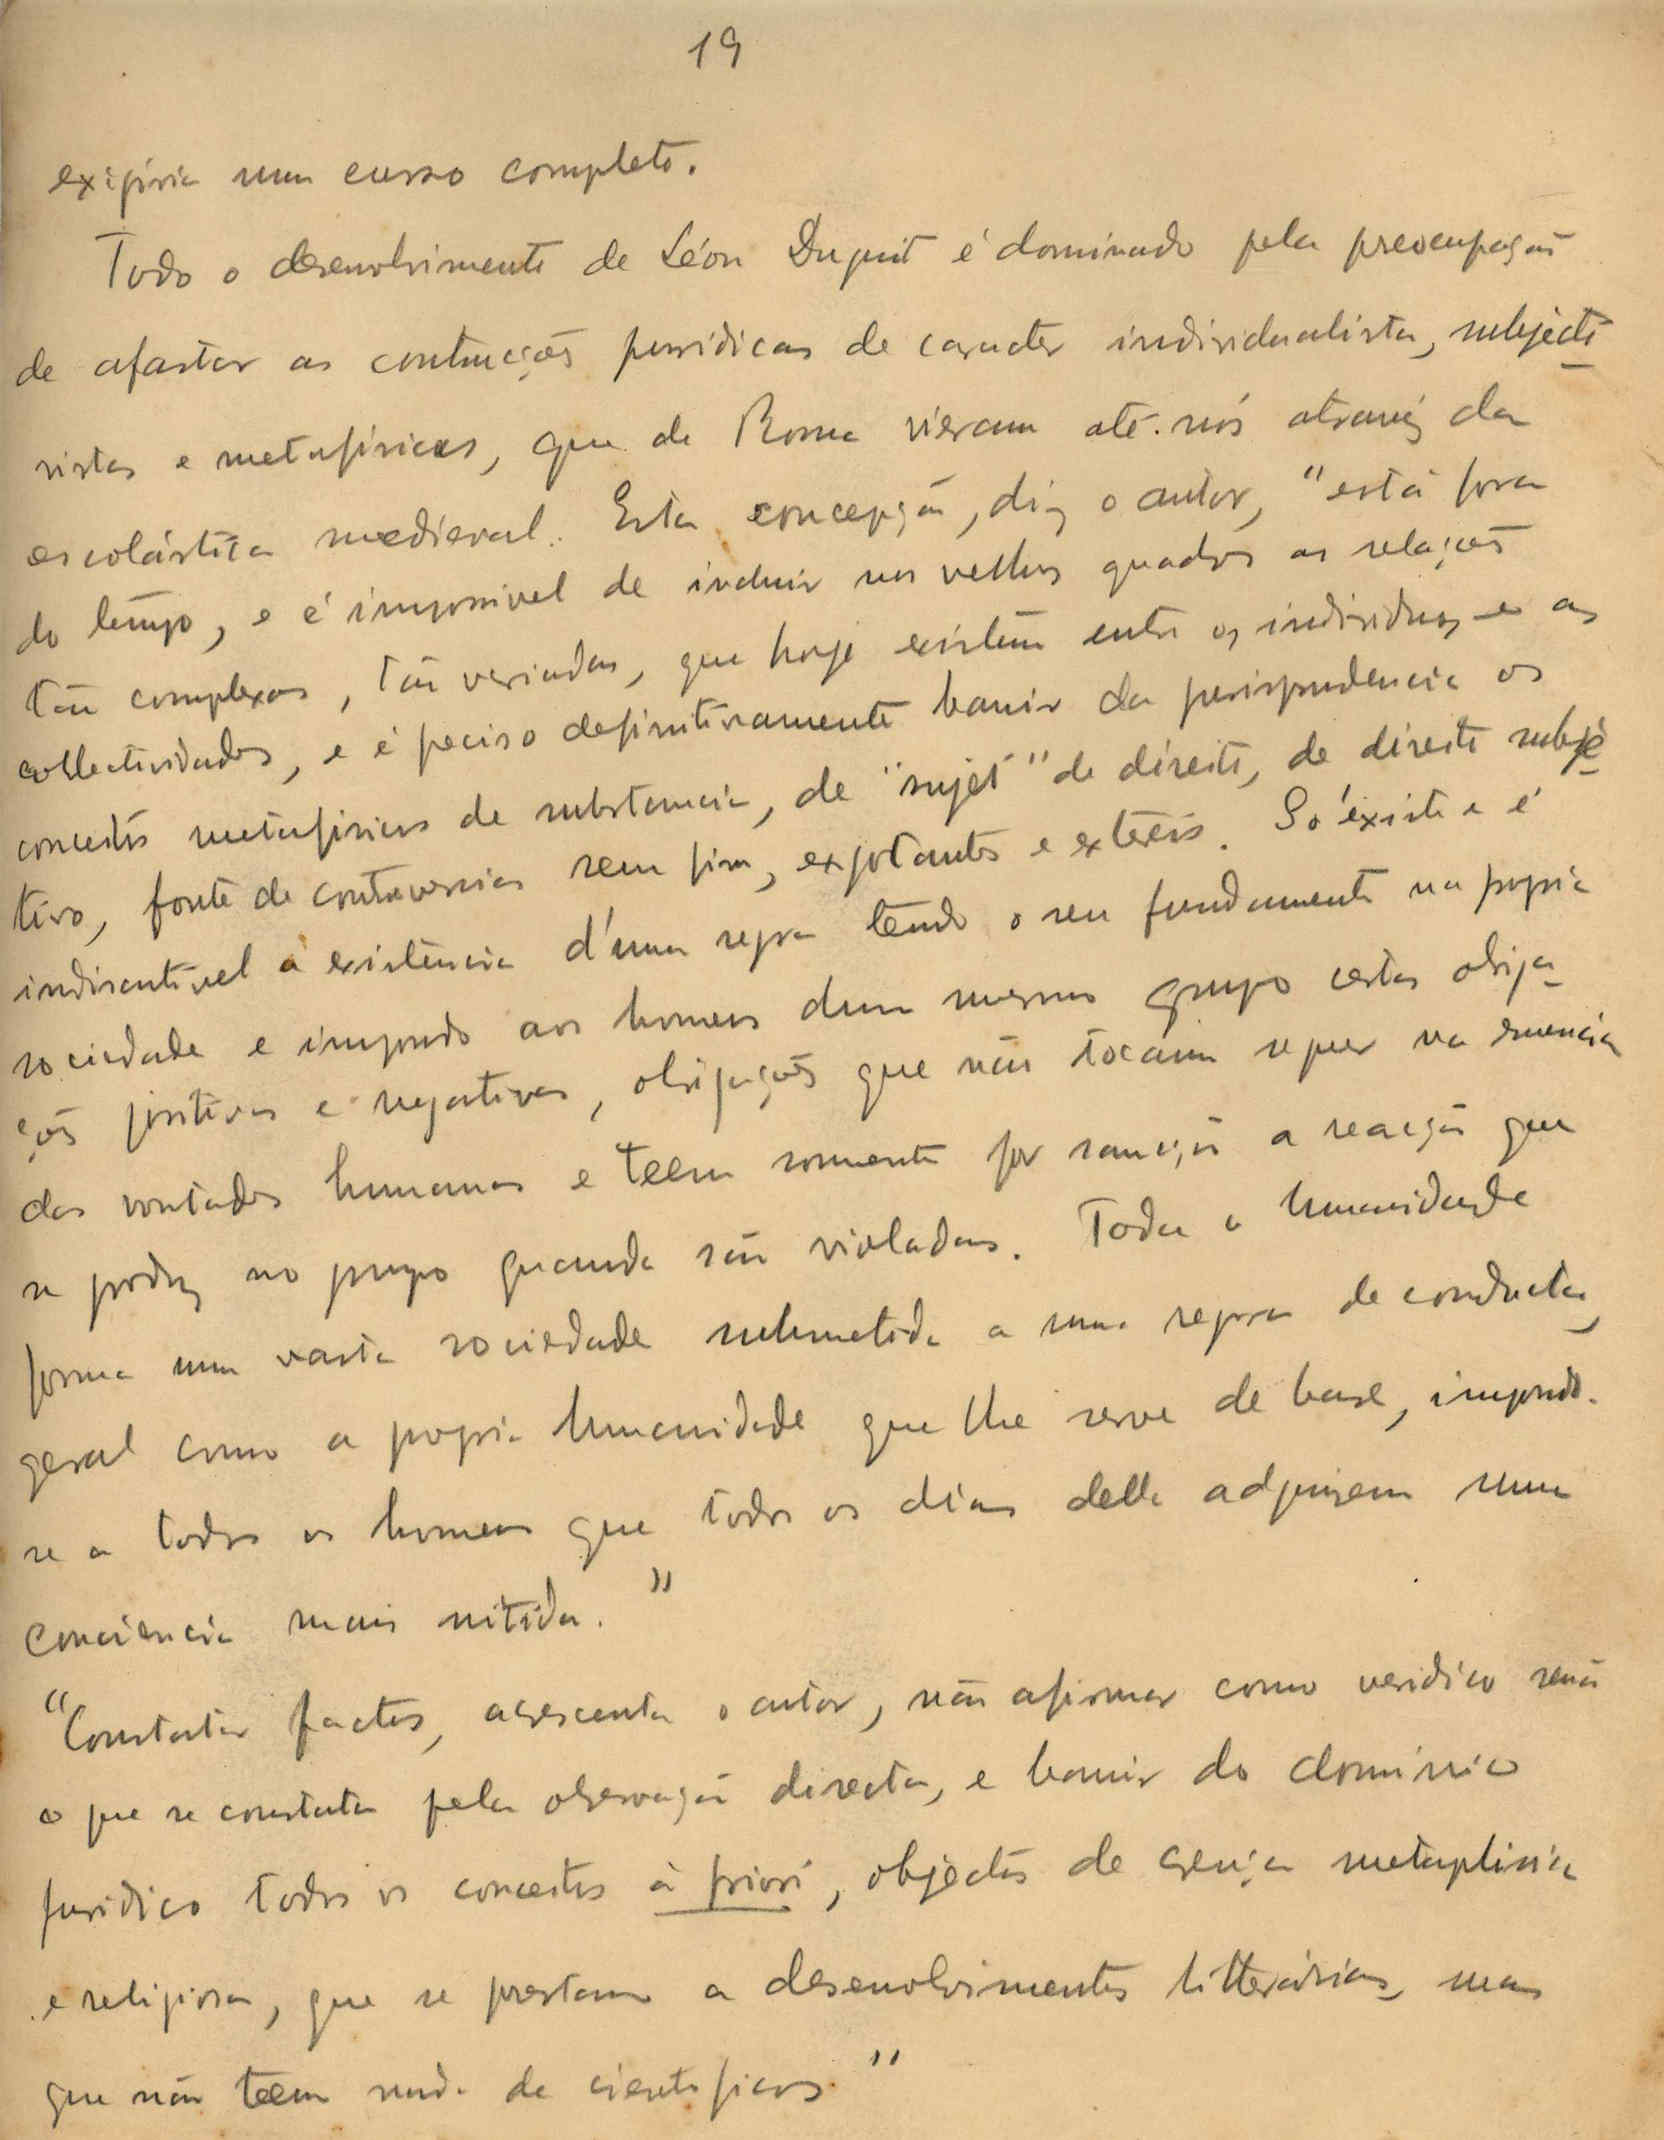 19
exigiria um curso completo.
Todo o desenvolvimento de Léon Duguit é dominado pela preocupação
de afastar as contrucções juridicas de caracter individualista, subjecti-
vistas e metafisicas, que de Roma vieram até nós através da
escolástica medieval. Esta concepção, diz o autor, "está fora
do tempo, e é impossivel de incluir nos velhos quadros as relações
tão complexas, tão variadas, que hoje existem entre os individuos e as
collectividades, e é preciso definitivamente banir da jurisprudencia os
conceitos metafisicos de substancia, de "sujet" de direito, de direito subje-
tivo, fonte de controversias sem fim, exgotantes e estéreis. Só existe e é
indiscutivel a existência d'uma regra tendo o seu fundamento na propria
sociedade e impondo aos homens dum mesmo grupo certas obriga-
ções positivas e negativas, obrigações que não tocam sequer na essencia
das vontades humanas e teem somente por sancção a reacção que
se produz no grupo quando são violadas. Toda a humanidade
forma uma vasta sociedade submetida a uma regra de conducta,
geral como a propria humanidade que lhe serve de base, impondo-
se a todos os homens que todos os dias della adquirem uma
conciencia mais nitida."
"Constatar factos, acrescenta o autor, não afirmar como veridico senão
o que se constata pela observação directa, e banir do dominio
juridico todos os conceitos à priori, objectos de crença metaphisica
e religiosa, que se prestam a desenvolvimentos litterários, mas
que não teem nada de cientificos."